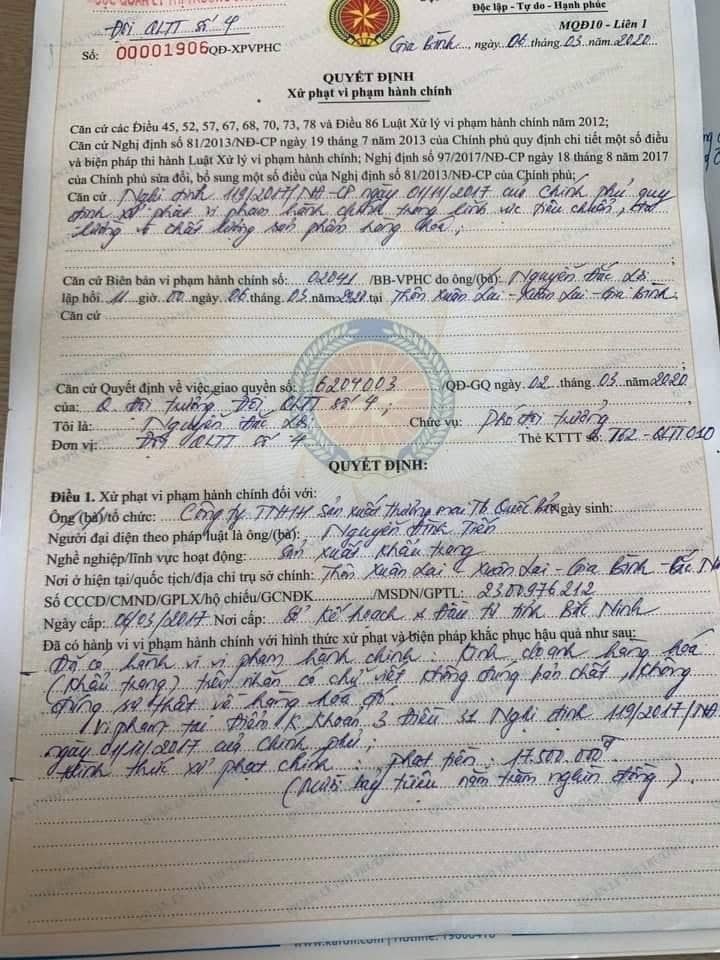 Độc lập - Tự do - Hạnh phúc
MQĐ10 - Liên 1
Đội QLTT số 4
Số: 00001906 QĐ-XPVPHC
Gia Bình, ngày 06 tháng 03 năm 2020
QUYẾT ĐỊNH
Xử phạt vi phạm hành chính
Căn cứ các Điều 45, 52, 57, 67, 68, 70, 73, 78 và Điều 86 Luật Xử lý vi phạm hành chính năm 2012;
Căn cứ Nghị định số 81/2013/NĐ-CP ngày 19 tháng 7 năm 2013 của Chính phủ quy định chi tiết một số điều
và biện pháp thi hành Luật Xử lý vi phạm hành chính; Nghị định số 97/2017/NĐ-CP ngày 18 tháng 8 năm 2017
của Chính phủ sửa đổi, bổ sung một số điều của Nghị định số 81/2013/NĐ-CP của Chính phủ;
Căn cứ Nghị định 119/2017/NĐ-CP ngày 01/11/2017 của Chính phủ quy
định xử phạt vi phạm hành chính trong lĩnh vực tiêu chuẩn, đo
lường và chất lượng sản phẩm hàng hóa;
Căn cứ Biên bản vi phạm hành chính số: 02041 /BB-VPHC do ông/(bà): Nguyễn Đắc
lập hồi 11 giờ 00 ngày 06 tháng 03 năm 2020 tại Thôn Xuân Lai - Xuân Lai - Gia Bình;
Căn cứ
Căn cứ Quyết định về việc giao quyền số: 6204003 /QĐ-GQ ngày 02 tháng 03 năm 2020
của: Q. Đội trưởng Đội QLTT số 4;
Tôi là: Nguyễn Đắc Chức vụ: Phó đội trưởng
Đơn vị: Đội QLTT số 4 Thẻ KTTT số: T62-QLTT010
QUYẾT ĐỊNH:
Điều 1. Xử phạt vi phạm hành chính đối với:
Ông (bà)/tổ chức: Công ty TNHH Sản xuất thương mại Tb Quốc Bảo Ngày sinh:
Người đại diện theo pháp luật là ông/(bà): Nguyễn Đình Tiến
Nghề nghiệp/lĩnh vực hoạt động: Sản xuất khẩu trang
Nơi ở hiện tại/quốc tịch/địa chỉ trụ sở chính: Thôn Xuân Lai - Xuân Lai - Gia Bình - Bắc
Số CCCD/CMND/GPLX/hộ chiếu/GCNĐK /MSDN/GPTL: 2300976212
Ngày cấp: 06/03/2017 Nơi cấp: Sở Kế hoạch & Đầu tư tỉnh Bắc Ninh
Đã có hành vi vi phạm hành chính với hình thức xử phạt và biện pháp khắc phục hậu quả như sau:
Đã có hành vi vi phạm hành chính: Kinh doanh hàng hóa
(khẩu trang) trên nhãn có chữ viết không đúng bản chất, không
đúng sự thật về hàng hóa đó.
Vi phạm tại Điểm k Khoản 3 Điều 31 Nghị định 119/2017/NĐ
ngày 01/11/2017 của Chính phủ;
Hình thức xử phạt chính: phạt tiền: 17.500.000đ
(Mười bảy triệu năm trăm nghìn đồng)